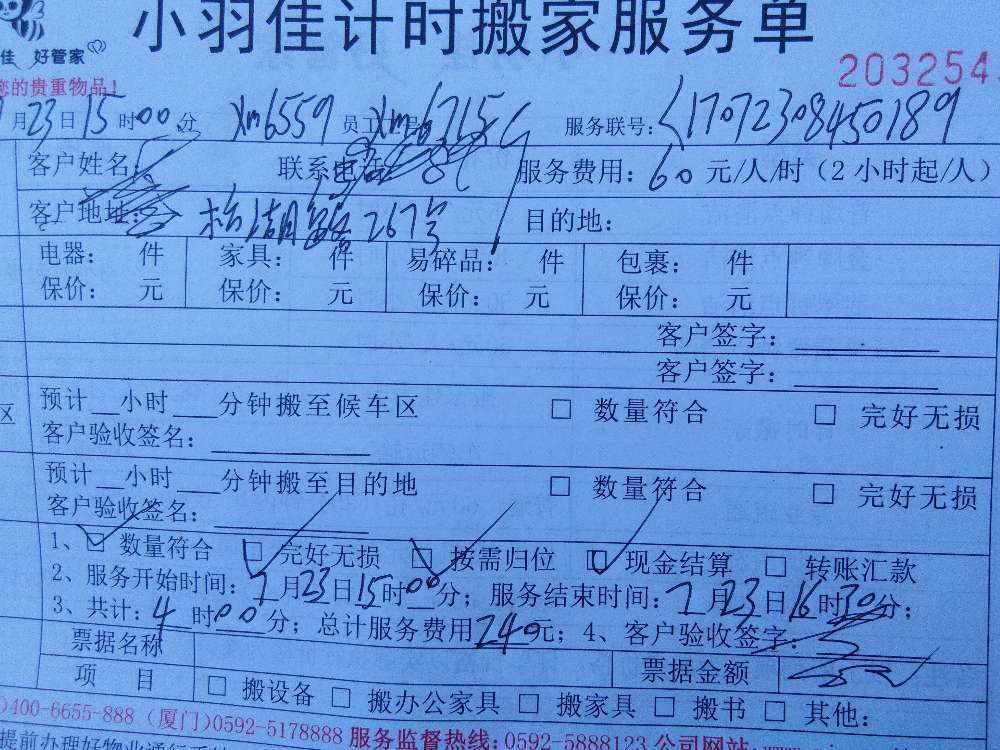 小羽佳计时搬家服务单
佳 好管家
您的贵重物品！
203254
月23日15时00分 Xm6559 员工 号 Xm6715 服务联号：1707230845 0189
客户姓名： 联系电话 服务费用：60元/人/时（2小时起/人）
客户地址： 湖路267号 目的地：
电器： 件 家具： 件 易碎品： 件 包裹： 件
保价： 元 保价： 元 保价： 元 保价： 元
客户签字：
客户签字：
预计__小时___分钟搬至候车区 □ 数量符合 □ 完好无损
区 客户验收签名：
预计__小时___分钟搬至目的地 □ 数量符合 □ 完好无损
客户验收签名：
1、☑ 数量符合 ☑ 完好无损 ☑ 按需归位 ☑ 现金结算 □ 转账汇款
2、服务开始时间：7月23日15时00分；服务结束时间：7月23日16时30分；
3、共计：4时00分；总计服务费用240元；4、客户验收签字：
票据名称 票据金额
项 目 □ 搬设备 □ 搬办公家具 □ 搬家具 □ 搬书 □ 其他：
)400-6655-888（厦门)0592-5178888 服务监督热线：0592-5888123 公司网站：
提前办理好物业通行手续